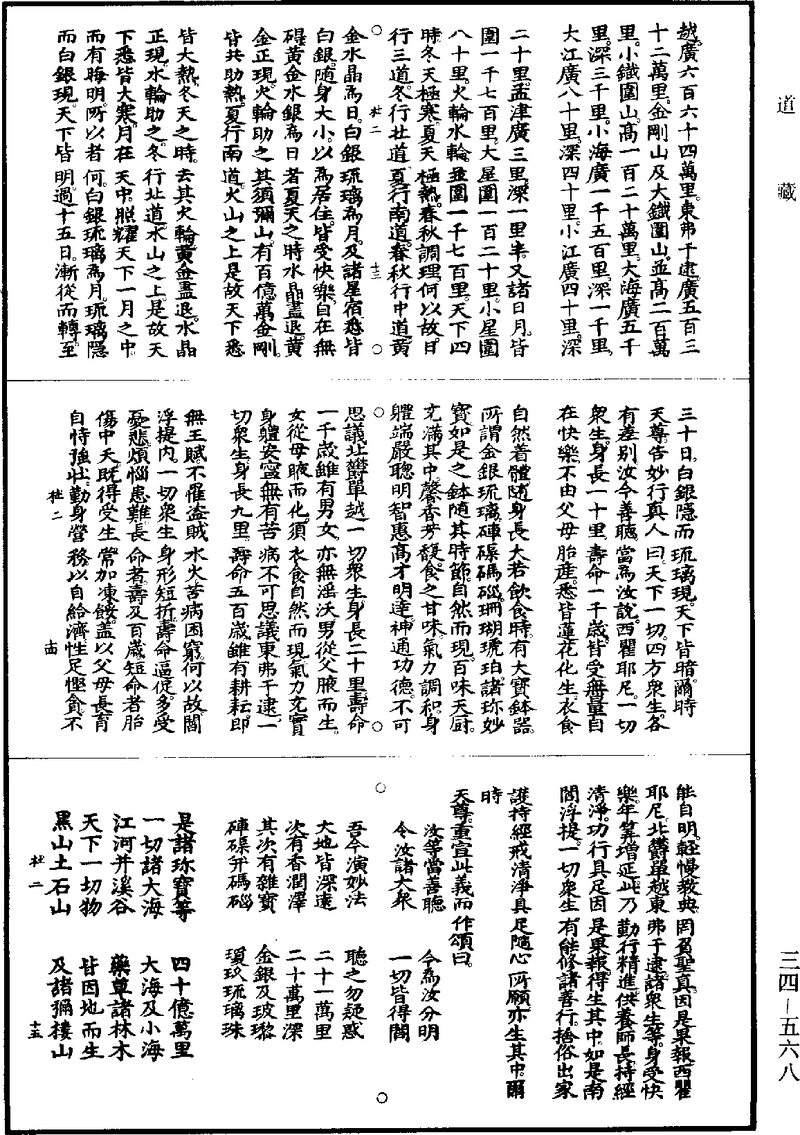 道藏
越廣六百六十四萬里東弗于逮廣五百三
十二萬里金剛山及大鐵圍山並高二百萬
里小鐵圍山高一百二十萬里大海廣五千
里深三千里小海廣一千五百里深一千里
大江廣八十里深四十里小江廣四十里深
二十里孟津廣三里深一里半又諸日月皆
圍一千七百里大星圍一百二十里小星圍
八十里火輪水輪並圍一千七百里天下四
時冬天極寒夏天極熱春秋調理何以故日
行三道冬行北道夏行南道春秋行中道黃
杜二 十三
金水晶為日白銀琉璃為月及諸星宿悉皆
白銀隨身大小以為居住皆受快樂自在無
碍黃金水銀為日者夏天之時水晶盡退黃
金正現火輪助之其須彌山有百億萬金剛
皆共助熱夏行南道火山之上是故天下悉
皆大熱冬天之時去其火輪黃金盡退水晶
正現水輪助之冬行北道水山之上是故天
下悉皆大寒月在天中照耀天下一月之中
而有晦明所以者何白銀琉璃為月琉璃隱
而白銀現天下皆明過十五日漸從而轉至
三十日白銀隱而琉璃現天下皆暗爾時
天尊告妙行真人曰天下一切四方衆生各
有差別汝今善聽當為汝說西瞿耶尼一切
衆生身長一十里壽命一千歲皆受無量自
在快樂不由父母胎產悉皆蓮花化生衣食
自然着體隨身長大若飲食時有大寶鉢器
所謂金銀琉璃硨磲碼碯珊瑚琥珀諸珎妙
寶如是之鉢隨其時節自然而現百味天厨
充滿其中馨香芳馥食之甘味氣力調和身
體端嚴聰明智惠高才明達神通功德不可
思議北欝單越一切衆生身長二十里壽命
一千歲雖有男女亦無滛沃男從父腋而生
女從母腋而化須衣食自然而現氣力充實
身體安寧無有苦病不可思議東弗于逮一
切衆生身長九里壽命五百歲雖有耕耘即
無王賦不罹盜賊水火苦病困窮何以故閻
浮提內一切衆生身形短折壽命逼促多受
憂悲煩惱患難長命者壽及百歲短命者胎
傷中夭既得受生常加凍餒蓋以父母長育
自恃強壯勤身營務以自給濟性足慳貪不
杜二 十四
能自明輕慢教典罔冒聖真因是果報西瞿
耶尼北欝單越東弗于逮諸衆生等身受快
樂年筭增延此乃勤行精進供養師長持經
清淨功行具足因是果報得生其中如是南
閻浮提一切衆生有能修諸善行捨俗出家
護持經戒清淨具足隨心所願亦生其中爾
時
天尊重宣此義而作頌曰
汝等當善聽 今為汝分明
令汝諸大衆 一切皆得聞
吾今演妙法 聽之勿疑惑
大地皆深遠 二十一萬里
次有香潤澤 二十萬里深
其次有雜寶 金銀及玻瓈
硨磲并碼碯 瓊玖琉璃珠
是諸珎寶等 四十億萬里
一切諸大海 大海及小海
江河并溪谷 藥草諸林木
天下一切物 皆因地而生
黑山土石山 及諸彌樓山
杜二 十五
三四—五六八